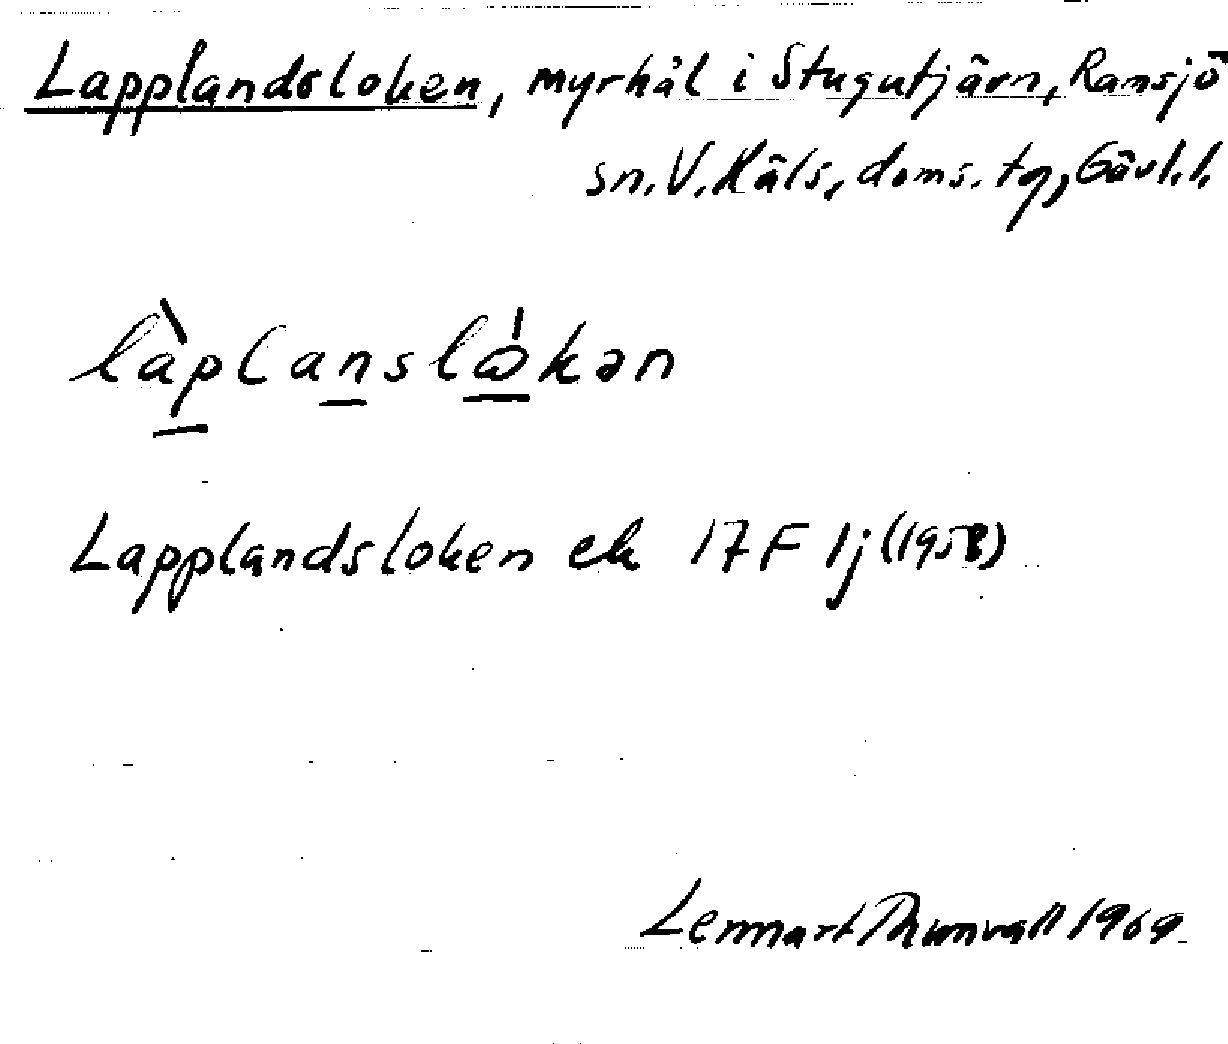 Lapplandsloken, myrhål i Stugutjärn, Ransjö
sn. V. Häls, doms. tg, Gävl.l.
làplanslòkən
Lapplandsloken ek 17F 1j (1958)
Lennart Thunvall 1969